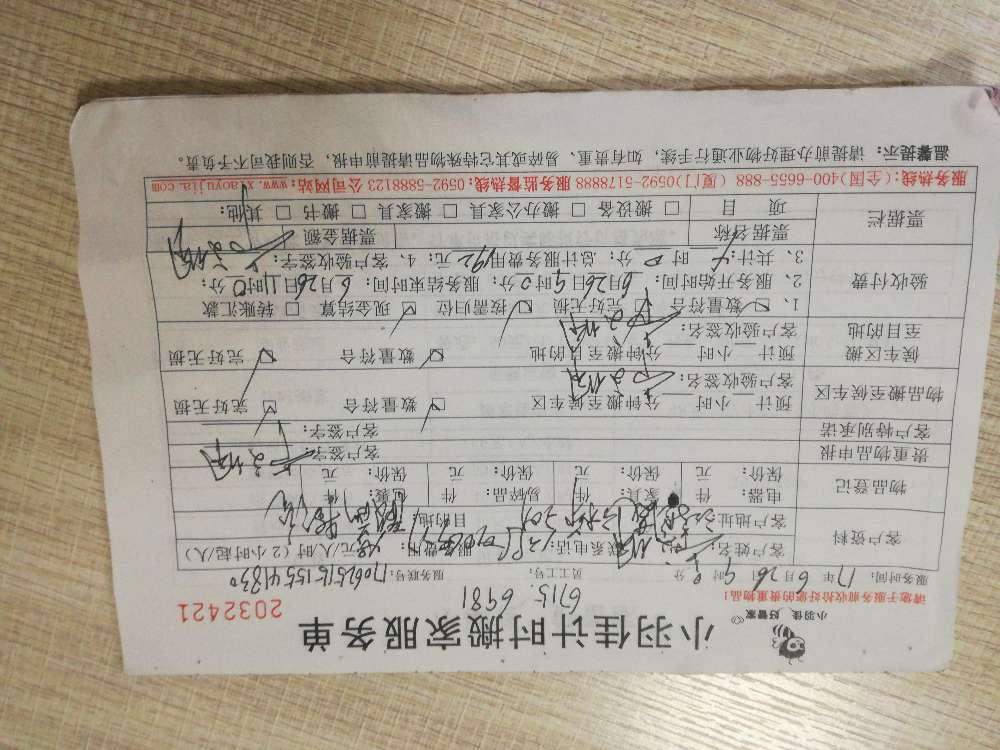 小羽佳 好管家
小羽佳计时搬家服务单
2032421
6715. 6981
请您于服务前收拾好您的贵重物品！
服务时间：17年6月26日9时 分 员工工号： 服务联号：1706251515541830
客户资料
客户姓名： 联系电话： 服务费用：48元/人/时（2小时/起/人）
客户地址： 目的地
物品登记
电器： 件 家具： 件 易碎品： 件 包装： 件
保价： 元 保价： 元 保价： 元 保价： 元
贵重物品申报 客户签字：
客户特别承诺 客户签字：
物品搬至候车区
预计 小时 分钟搬至候车区 ☑ 数量符合 ☑ 完好无损
客户验收签名：
候车区搬至目的地
预计 小时 分钟搬至目的地 ☑ 数量符合 ☑ 完好无损
客户验收签名：
验收付费
1、☑ 数量符合 ☑ 完好无损 ☑ 按需归位 ☑ 现金结算 □ 转账汇款
2、服务开始时间：6月26日9时0分；服务结束时间：6月26日11时0分；
3、共计：4时0分；总计服务费用192元；4、客户验收签字：
票据栏
票据名称 票据金额
项 目 □ 搬设备 □ 搬办公家具 □ 搬家具 □ 搬书 □ 其他：
服务热线：(全国)400-6655-888 (厦门)0592-5178888 服务监督热线：0592-5888123 公司网站：www.xiaoyujia.com
温馨提示：请提前办理好物业通行手续，如有贵重、易碎或其它特殊物品请提前申报，否则我司不予负责。